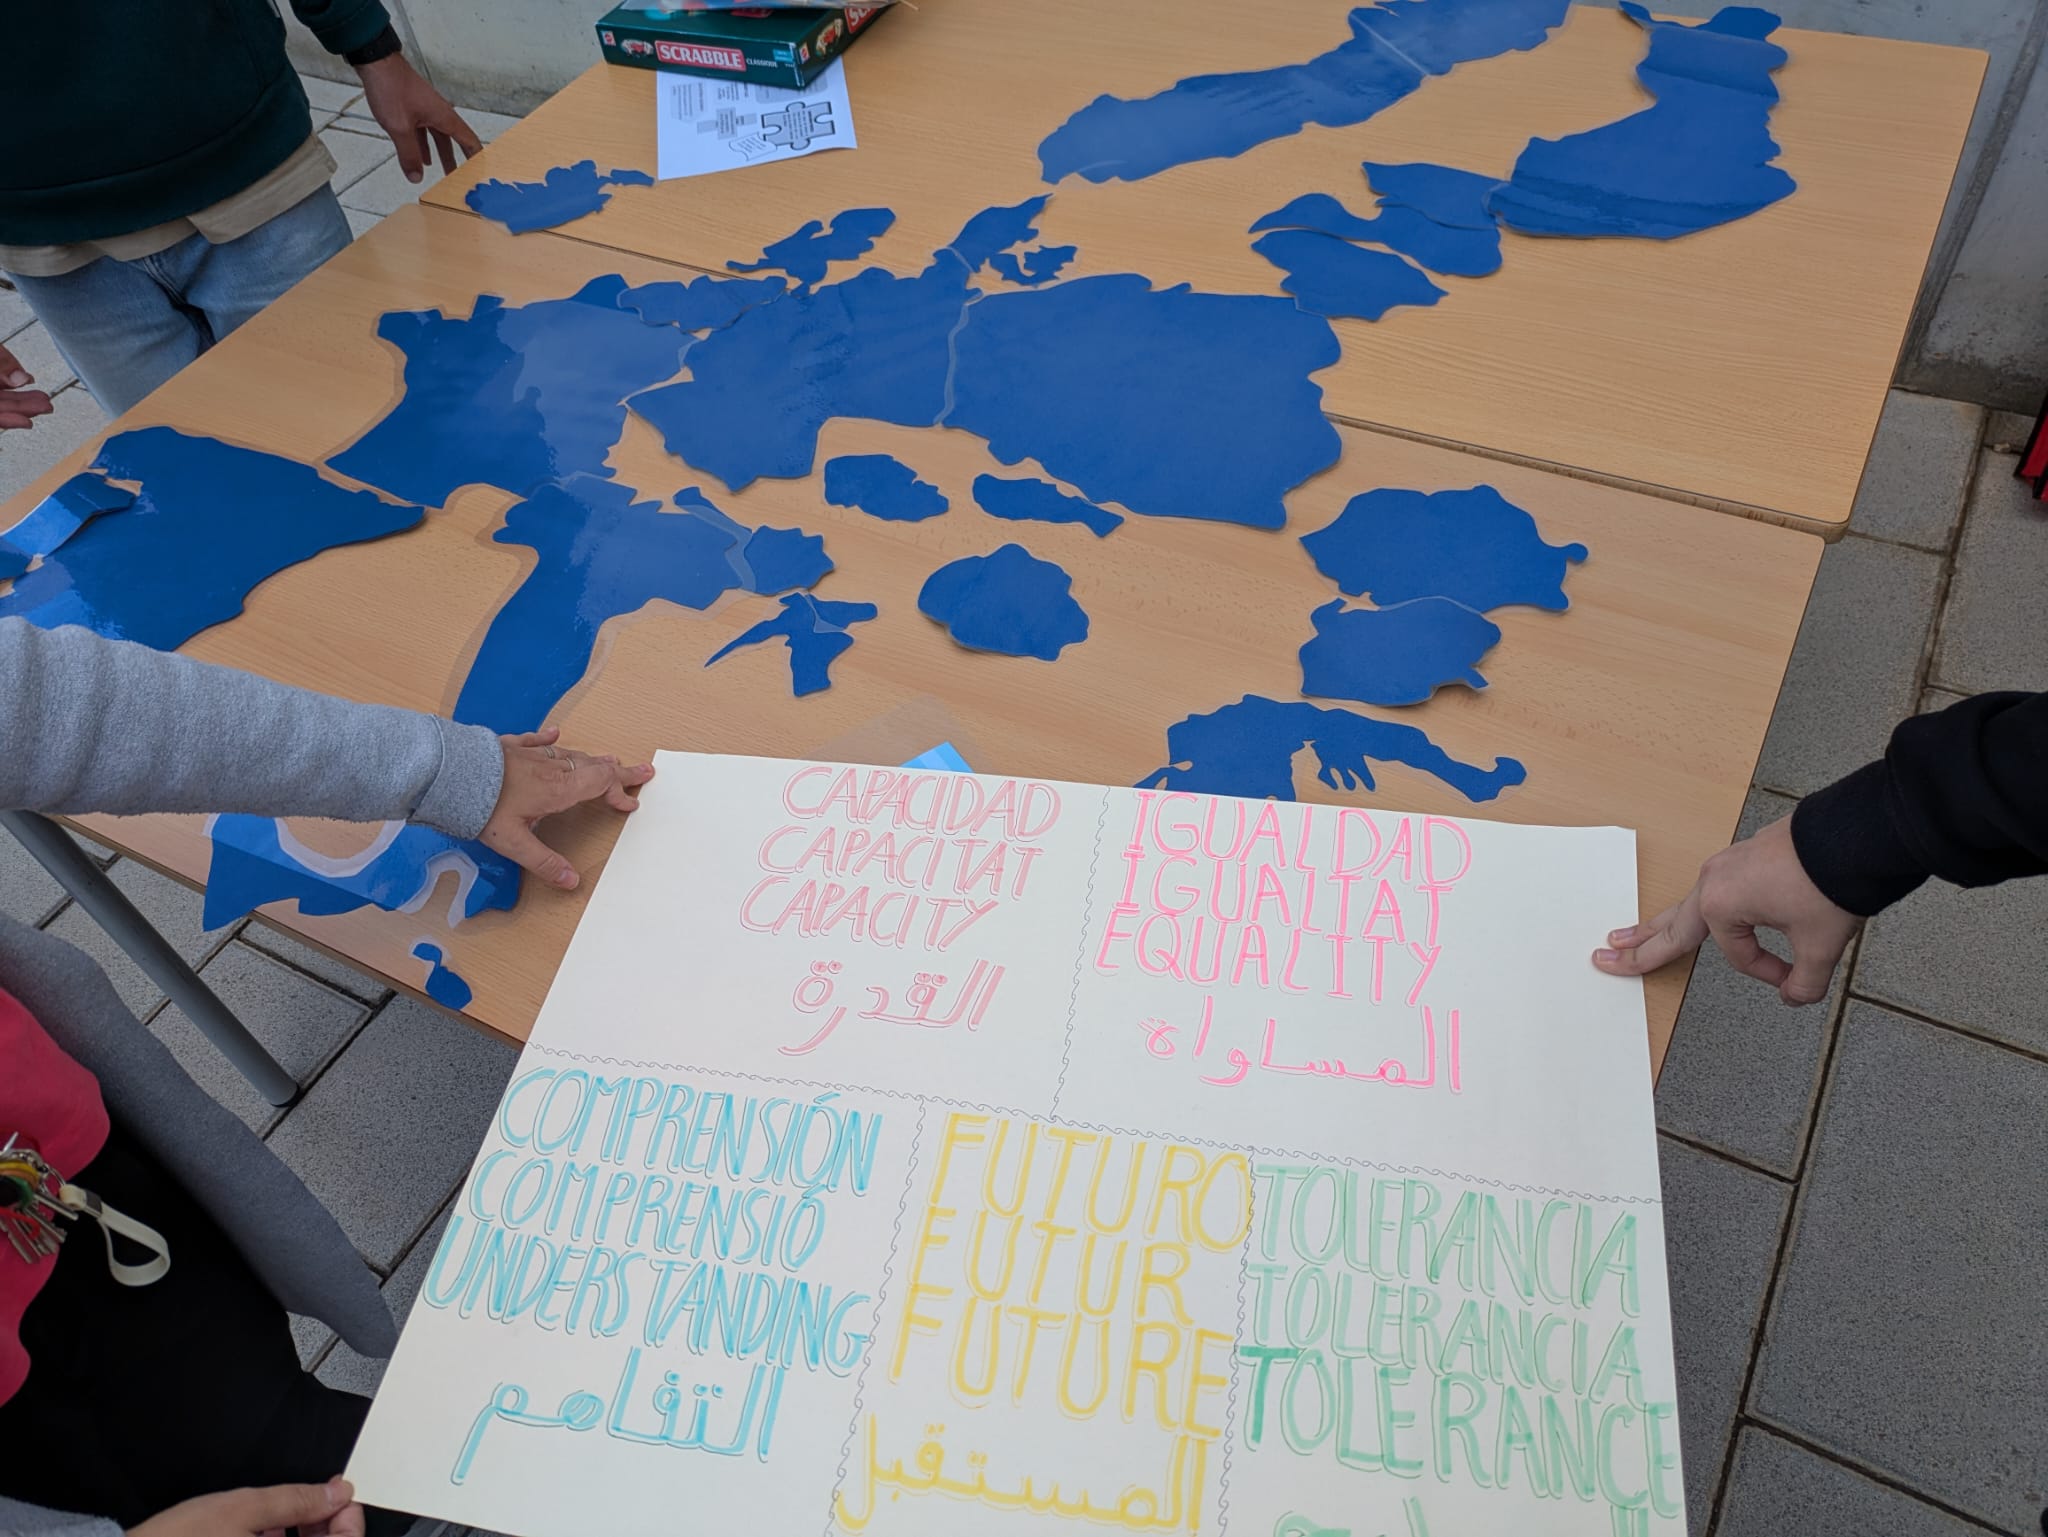 SCRABBLE
CLASSIQUE
CAPACIDAD
CAPACITAT
CAPACITY
القدرة
IGUALDAD
IGUALTAT
EQUALITY
المساواة
COMPRENSIÓN
COMPRENSIÓ
UNDERSTANDING
التفاهم
FUTURO
FUTUR
FUTURE
المستقبل
TOLERANCIA
TOLERANCIA
TOLERANCE